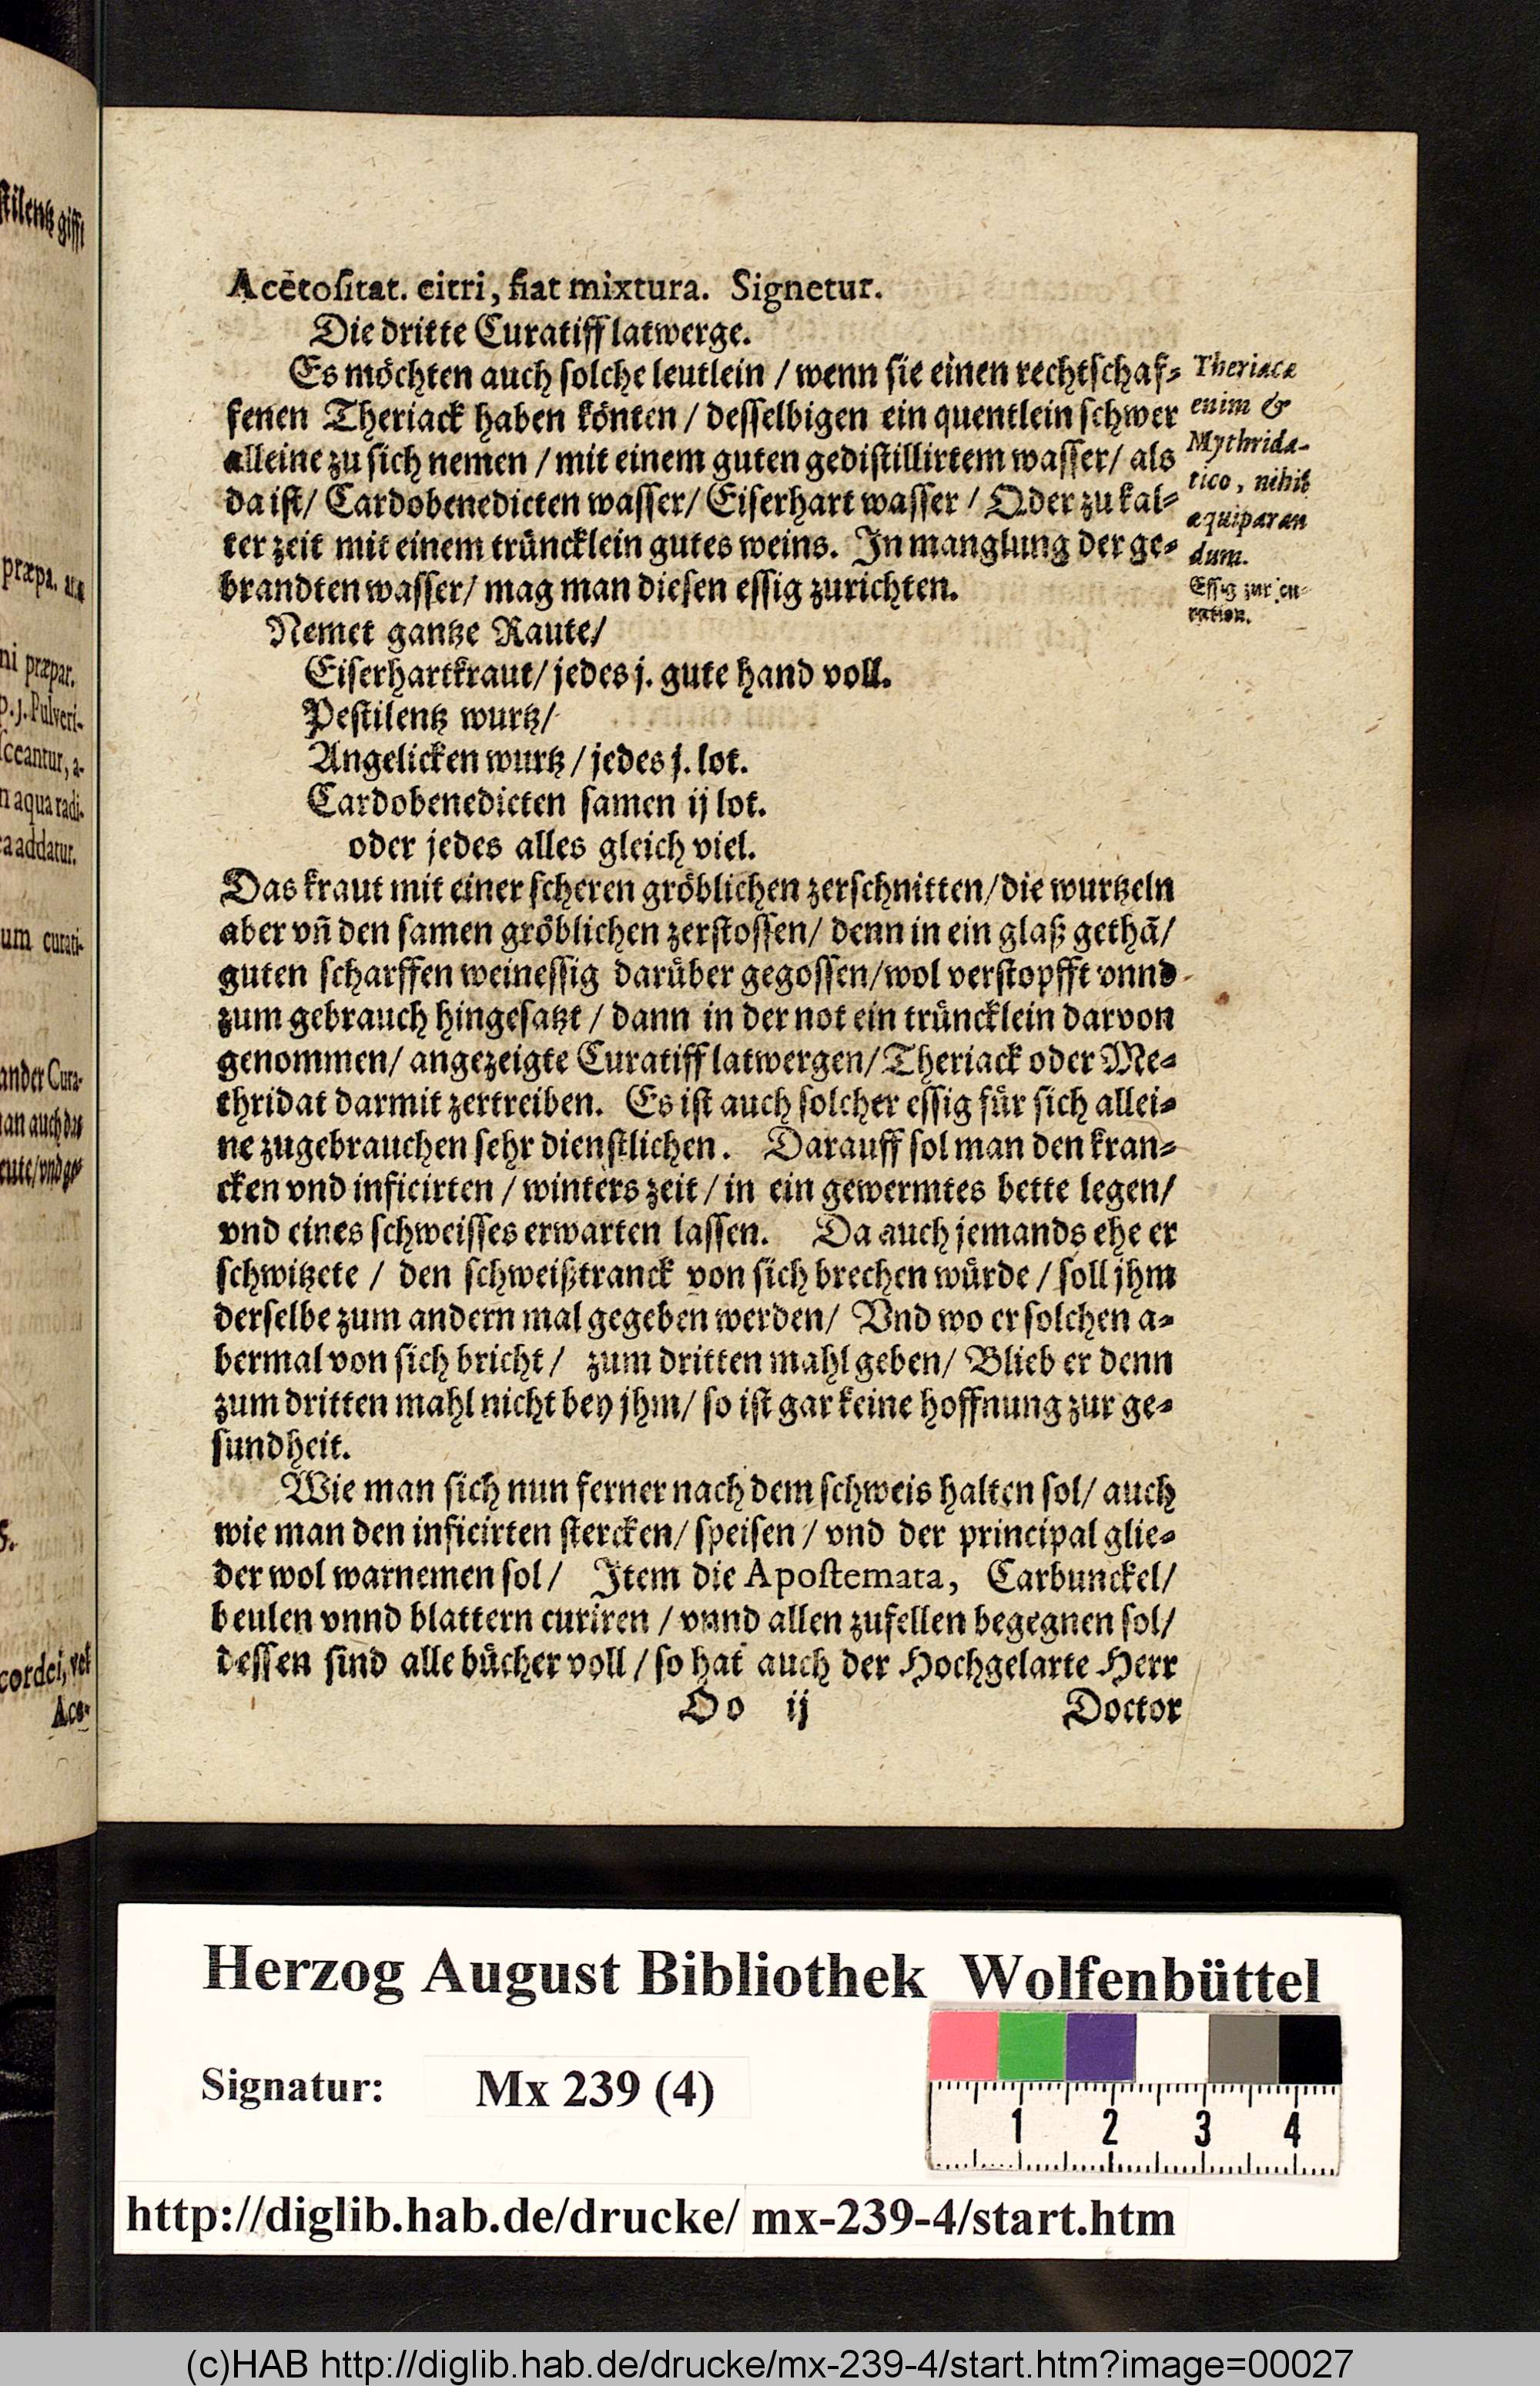 Acetositat. citri, fiat mixtura. Signetur.
Die dritte Curatiff latwerge.
Es möchten auch solche leutlein / wenn sie einen rechtschaf-
fenen Theriack haben könten / desselbigen ein quentlein schwer
alleine zu sich nemen / mit einem guten gedistillirtem wasser / als
da ist / Cardobenedicten wasser / Eiserhart wasser / Oder zu kal-
ter zeit mit einem trüncklein gutes weins. In manglung der ge-
brandten wasser / mag man diesen essig zurichten.
Theriacæ
enim &
Mythrida-
tico, nihil
æquiparan
dum.
Essig zur cu-
ration.
Nemet gantze Raute /
Eiserhartkraut / jedes j. gute hand voll.
Pestilentz wurtz /
Angelicken wurtz / jedes j. lot.
Cardobenedicten samen ij lot.
oder jedes alles gleich viel.
Das kraut mit einer scheren gröblichen zerschnitten / die wurtzeln
aber vñ den samen gröblichen zerstossen / denn in ein glaß gethã /
guten scharffen weinessig darüber gegossen / wol verstopfft vnnd
zum gebrauch hingesatzt / dann in der not ein trüncklein darvon
genommen / angezeigte Curatiff latwergen / Theriack oder Me-
thridat darmit zertreiben. Es ist auch solcher essig für sich allei-
ne zugebrauchen sehr dienstlichen. Darauff sol man den kran-
cken vnd inficirten / winters zeit / in ein gewermtes bette legen /
vnd eines schweisses erwarten lassen. Da auch jemands ehe er
schwitzete / den schweißtranck von sich brechen würde / soll jhm
derselbe zum andern mal gegeben werden / Vnd wo er solchen a-
bermal von sich bricht / zum dritten mahl geben / Blieb er denn
zum dritten mahl nicht bey jhm / so ist gar keine hoffnung zur ge-
sundheit.
Wie man sich nun ferner nach dem schweis halten sol / auch
wie man den inficirten stercken / speisen / vnd der principal glie-
der wol warnemen sol / Item die Apostemata, Carbunckel /
beulen vnnd blattern curiren / vnnd allen zufellen begegnen sol /
dessen sind alle bücher voll / so hat auch der Hochgelarte Herr
Oo ij Doctor
Herzog August Bibliothek Wolfenbüttel
Signatur: Mx 239 (4)
1 2 3 4
http://diglib.hab.de/drucke/ mx-239-4/start.htm
(c)HAB http://diglib.hab.de/drucke/mx-239-4/start.htm?image=00027